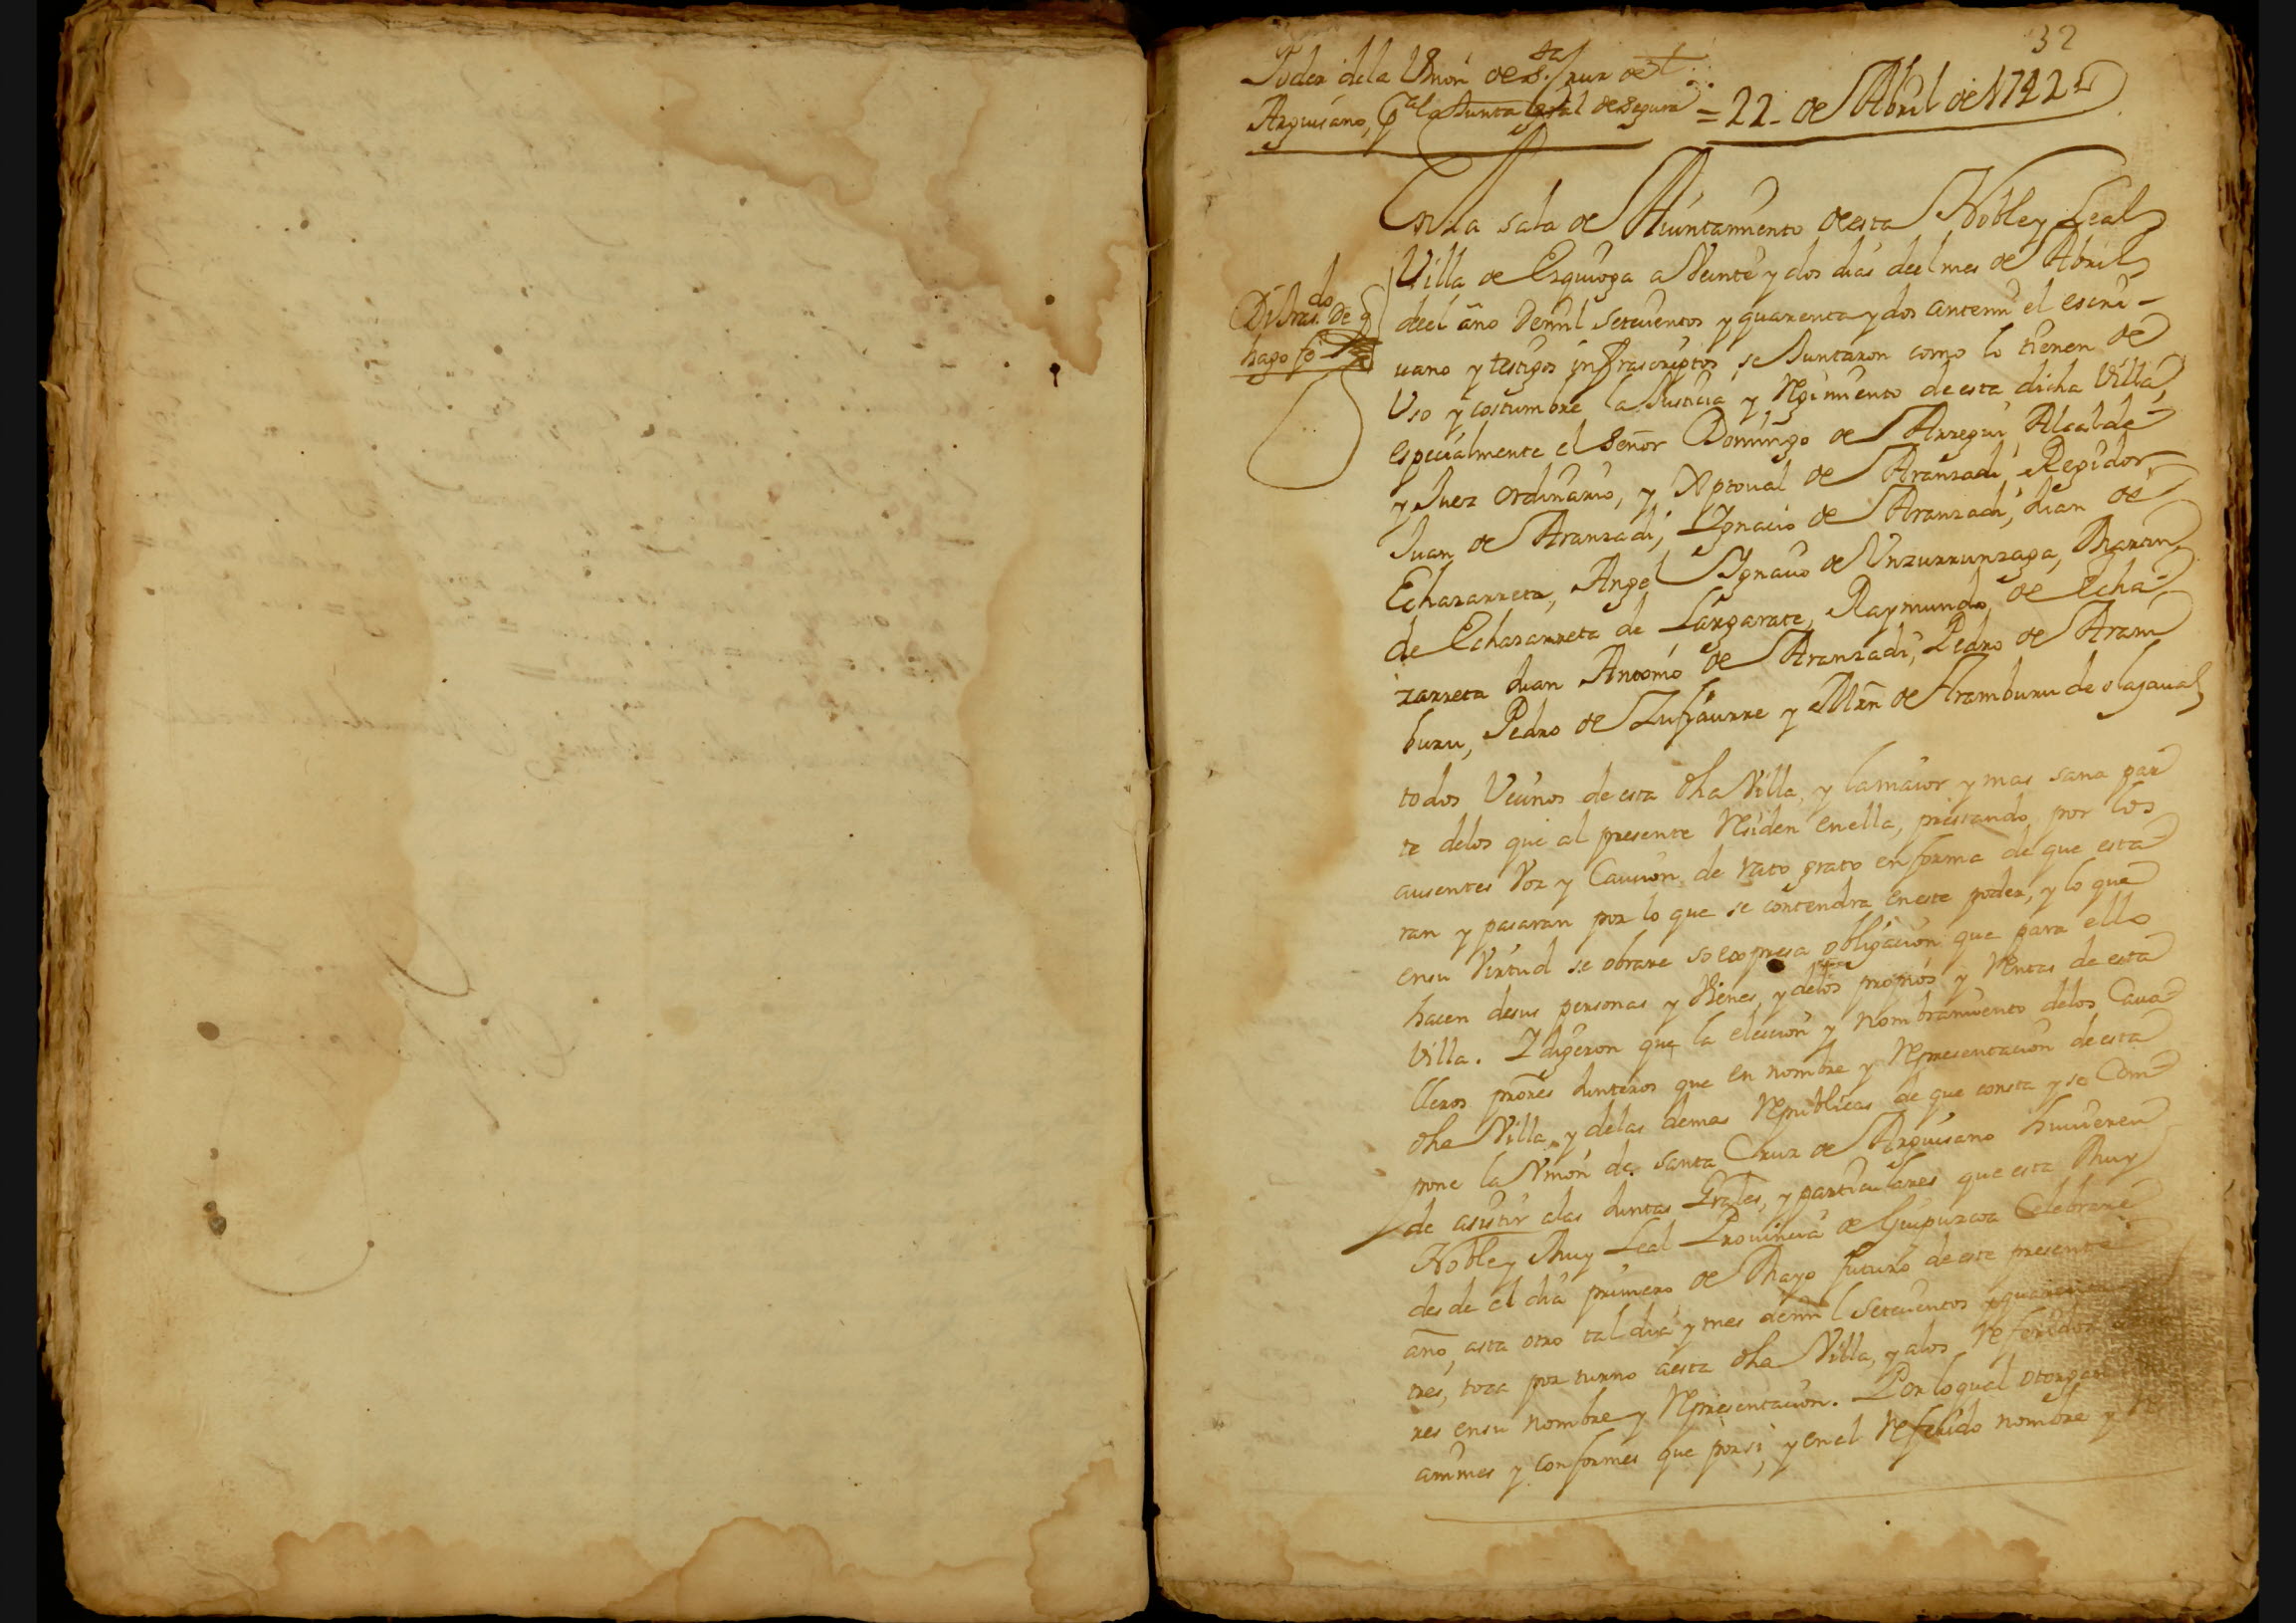 32
Poder dela Vnion de Sta. Cruz de
Arguisano, pa. la Junta gral de Segura = 22 - de Abril de 1742
En la sala de Aiuntamiento de esta Noble y Leal
Villa de Ezquioga a Veinte y dos dias del mes de Abril
deel año demil setecientos y quarenta y dos antemi el escri-
uano y testigos infrascriptos, se Juntaron como lo tienen de
Vso y costumbre la Justicia y Regimiento de esta dicha Villa,
especialmente el Señor Domingo de Arregui Alcalde
y Juez ordinario, y Xptoual de Aranzadi, Regidor,
Juan de Aranzadi, Ygnacio de Aranzadi, Juan de
Echazarreta, Angel Ygnacio de Vnzurrunzaga, Martin
de Echazarreta de Largarate, Raymundo de Echa-
zarreta Juan Antonio de Aranzadi, Pedro de Aram
buru, Pedro de Zufiaurre y Mrn de Aramburu de olazaual
Di tras.do De q
hago fe
todos Vecinos de esta dha Villa, y la maior y mas sana par
te delos que al presente Residen en ella, prestando por los
ausentes Voz y Caucion de rato grato en forma de que esta
ran y pasaran por lo que se contendra en este poder, y lo que
en su Virtud se obrare so expresa obligacion que para ello
hacen desus personas y Vienes, y delos propios y Rentas de esta
Villa. Y digeron que la eleccion y nombramiento delos Caua
lleros prores Junteros que en nombre y Representacion de esta
dha Villa, y delas demas Republicas de que consta y se Com
pone la Vnion de Santa Cruz de Arguisano huuieren
de asistir alas Juntas Grales, y particulares que esta Muy
Noble y Muy Leal Prouincia de Guipuzcoa Celebrare
desde el dia primero de Mayo futuro de este presente
año, asta otro tal dia y mes demil setecientos y quarenta
tres, toca por turno a esta dha Villa, y alos referidos
res en su nombre y Representacion. Por lo qual otorgan
animes y conformes que por si, y en el Referido nombre y Re